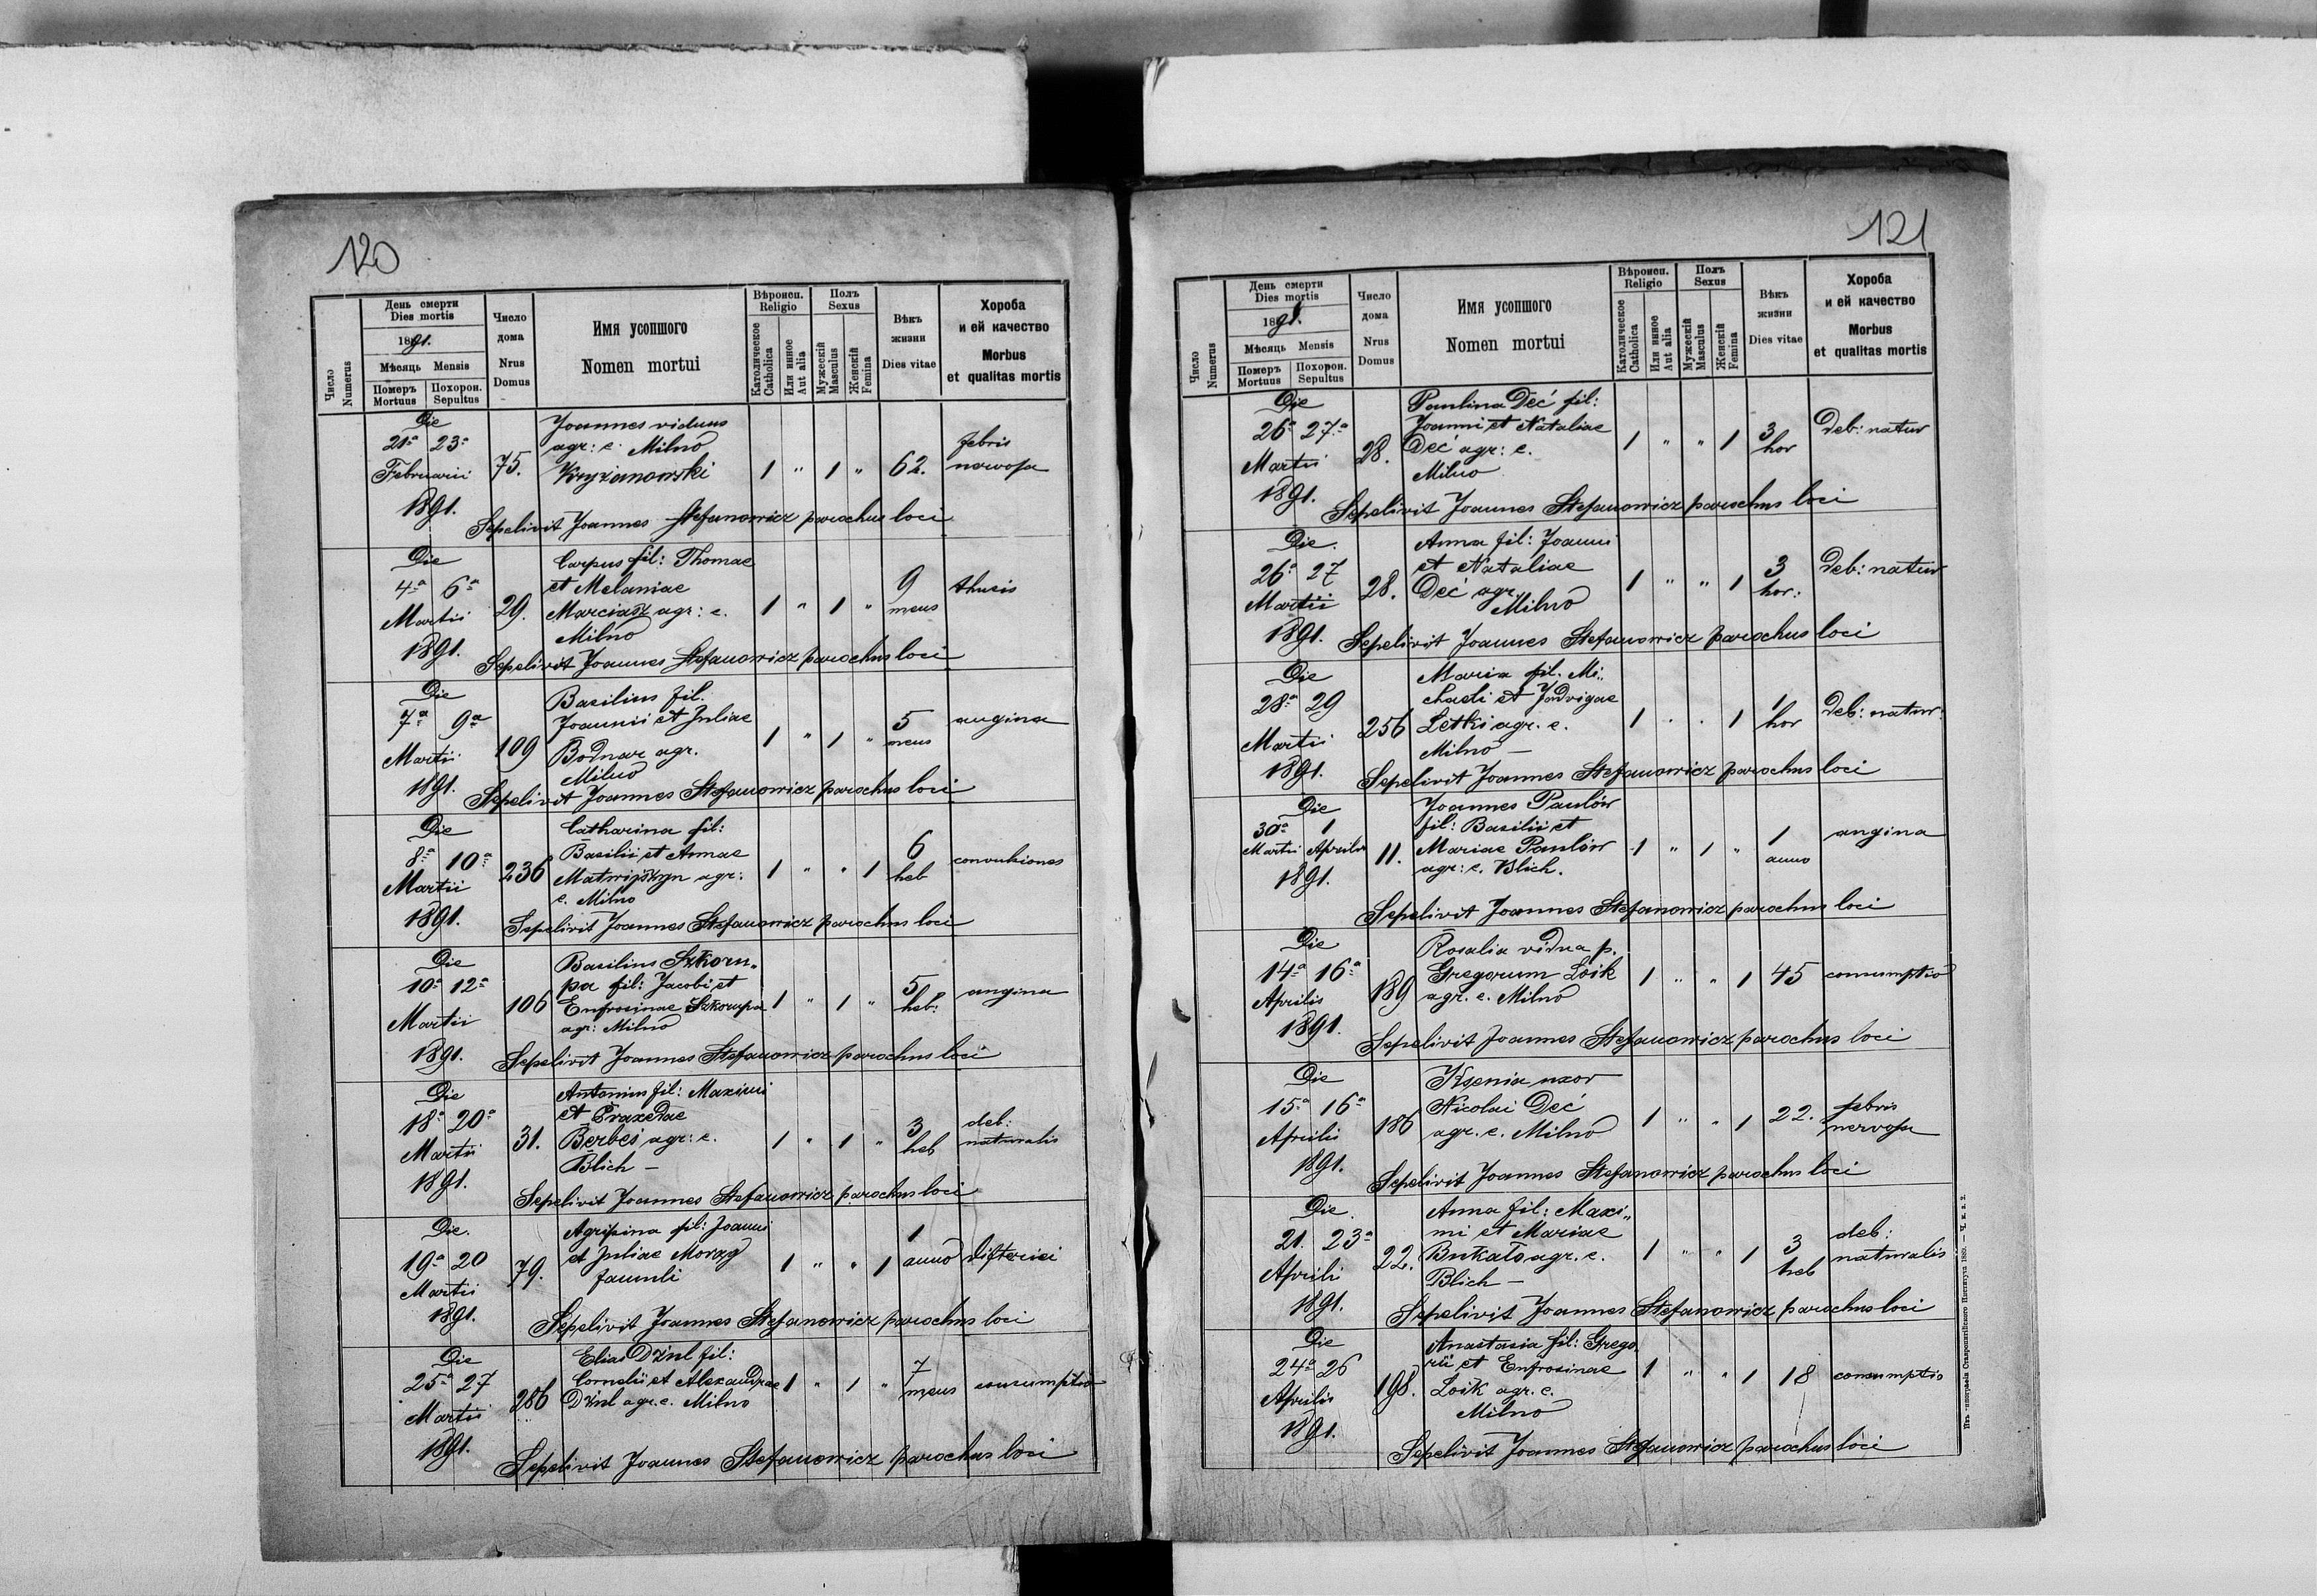 120
Число
Numerus
День смерти
Dies mortis
1891.
Мѣсяць Mensis
Померъ
Mortuus
Похорон.
Sepultus
Число
дома
Nrus
Domus
Имя усопшого
Nomen mortui
Вѣроисп.
Religio
Католическое
Catholica
Или инное
Aut alia
Полъ
Sexus
Мужескій
Masculus
Женскій
Femina
Вѣкъ
жизни
Dies vitae
Хороба
и ей качество
Morbus
et qualitas mortis
Die
21ª 23ª
Februarii
1891.
75.
Joannes viduus
agr: c. Milno
Kryżanowski
1 " 1 "
62.
febris
nervosa
Sepelivit Joannes Stefanowicz parochus loci
Die
4ª 6ª
Martii
1891.
29.
Carpus fil: Thomae
et Melaniae
Marciasz agr: c.
Milno
1 " 1 "
9
mens
thusis
Sepelivit Joannes Stefanowicz parochus loci
Die
7ª 9ª
Martii
1891.
109
Basilius fil.
Joannii et Juliae
Bodnar agr.
Milno
1 " 1 "
5
mens
angina
Sepelivit Joannes Stefanowicz parochus loci
Die
8ª 10ª
Martii
1891.
236
Catharina fil:
Basilii et Annae
Matwijszyn agr:
c. Milno
1 " " 1
6
heb
convulsiones
Sepelivit Joannes Stefanowicz parochus loci
Die
10ª 12ª
Martii
1891.
106
Basilius Szkoru„
pa fil: Jacobi et
Eufrosinae Szkorupa
agr: Milno
1 " 1 "
5
heb:
angina
Sepelivit Joannes Stefanowicz parochus loci
Die
18ª 20ª
Martii
1891.
31.
Antonius fil: Maximi
et Praxedae
Berbeś agr: c.
Blich —
1 " 1 "
3
heb
deb:
naturalis
Sepelivit Joannes Stefanowicz parochus loci
Die.
19ª 20
Martii
1891.
79.
Agripina fil: Joanni
et Juliae Morag
famuli
1 " " 1
1
anno
difterici
Sepelivit Joannes Stefanowicz parochus loci
Die
25ª 27
Martii
1891.
286
Elias Dziul fil:
Cornelii et Alexandrae
Dziul agr. c. Milno
1 " 1 "
7
mens
consumptio
Sepelivit Joannes Stefanowicz parochus loci
121
Число
Numerus
День смерти
Dies mortis
1891.
Мѣсяць Mensis
Померъ
Mortuus
Похорон.
Sepultus
Число
дома
Nrus
Domus
Имя усопшого
Nomen mortui
Вѣроисп.
Religio
Католическое
Catholica
Или инное
Aut alia
Полъ
Sexus
Мужескій
Masculus
Женскій
Femina
Вѣкъ
жизни
Dies vitae
Хороба
и ей качество
Morbus
et qualitas mortis
Die
26ª 27ª
Martii
1891.
28.
Paulina Deć fil:
Joanni et Nataliae
Deć agr: c.
Milno
1 " " 1
3
hor
Deb: natur
Sepelivit Joannes Stefanowicz parochus loci
Die.
26ª 27
Martii
1891.
28.
Anna fil: Joanni
et Nataliae
Deć agr.
Milno
1 " " 1
3
hor:
Deb: natur
Sepelivit Joannes Stefanowicz parochus loci
Die
28ª 29
Martii
1891.
256
Maria fil. Mi„
chaeli et Jadvigae
Letki agr. c.
Milno —
1 . . 1
1
hor
Deb: natur:
Sepelivit Joannes Stefanowicz parochus loci
Die
30ª 1
Martii Aprilis
1891.
11.
Joannes Pawlów
fil: Basilii et
Mariae Pawlów
agr: c. Blich.
1 " 1 "
1
anno
angina
Sepelivit Joannes Stefanowicz parochus loci
Die
14ª 16ª
Aprilis
1891.
189
Rosalia vidua p.
Gregorum Loik
agr. c. Milno
1 " " 1
45
consumptio
Sepelivit Joannes Stefanowicz parochus loci
Die
15ª 16ª
Aprilis
1891.
186
Ksenia uxor
Nicolai Deć
agr. c. Milno
1 " " 1
22.
febris
nervosa
Sepelivit Joannes Stefanowicz parochus loci
Die.
21. 23ª
Aprili
1891.
22.
Anna fil: Maxi„
mi et Mariae
Bukało agr. c.
Blich —
1 " " 1
3
heb
deb:
naturalis
Sepelivit Joannes Stefanowicz parochus loci
Die
24ª 26
Aprilis
1891.
198.
Anastasia fil: Grego
rii et Eufrosinae
Loik agr. c.
Milno
1 " " 1
18
consumptio
Sepelivit Joannes Stefanowicz parochus loci
Изъ типографіи Ставропигійского Института 1889. — Ч. к. з. 2.